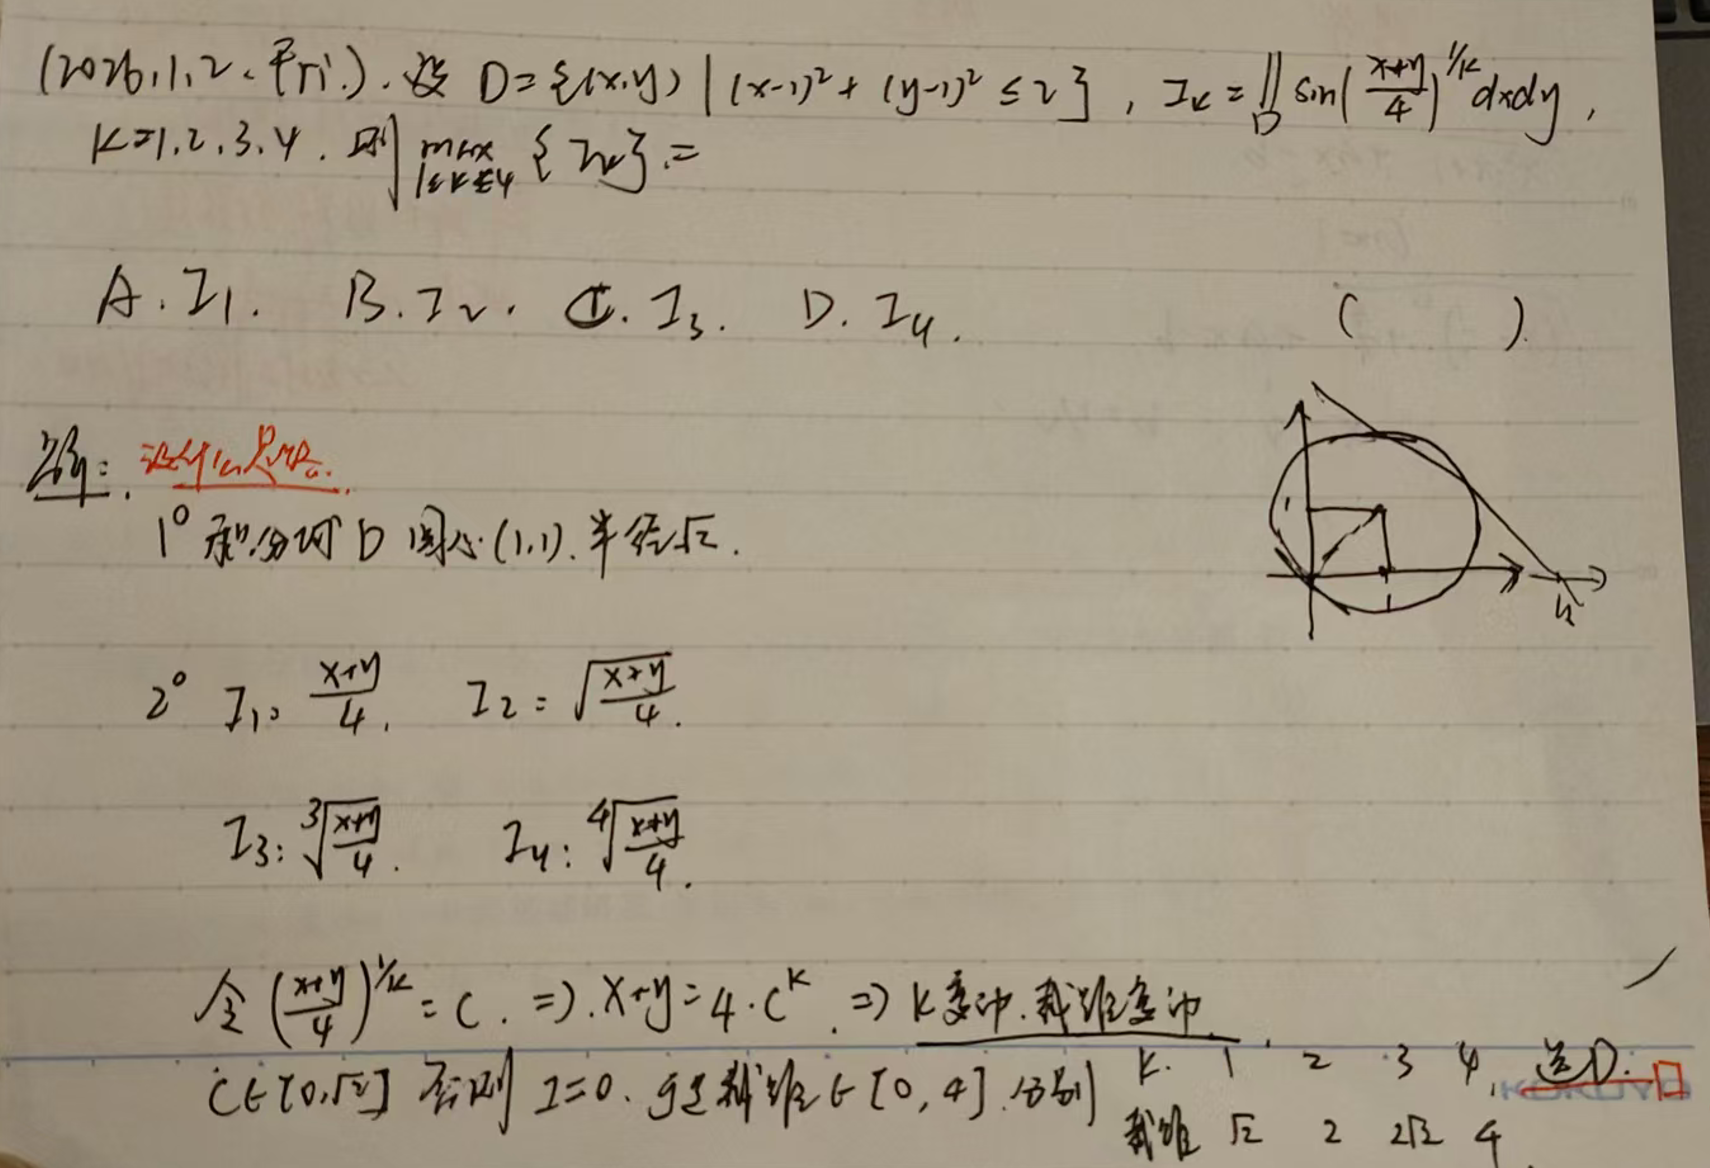 (2026.1.2. Fri.). 设 D={(x,y) | (x-1)²+(y-1)²≤2}, I_K=∬_D sin(\frac{x+y}{4})^{1/K}dxdy,
K=1.2.3.4. 则 max_{1≤K≤4} {I_K}.=
A. I₁. B. I₂. C. I₃. D. I₄. ( ).
解:
1° 积分域 D 圆心(1,1). 半径√2.
1
1
2° I₁: \frac{x+y}{4}. I₂: \sqrt{\frac{x+y}{4}}.
I₃: \sqrt[3]{\frac{x+y}{4}}. I₄: \sqrt[4]{\frac{x+y}{4}}.
令 (\frac{x+y}{4})^{1/K} = C. ⇒). x+y=4·C^K. ⇒) K变, 截距变
C∈[0,√2] 否则 I=0. 截距∈[0,4]. 分别 K. 1 2 3 4. 选D. □
截距 √2 2 2√2 4